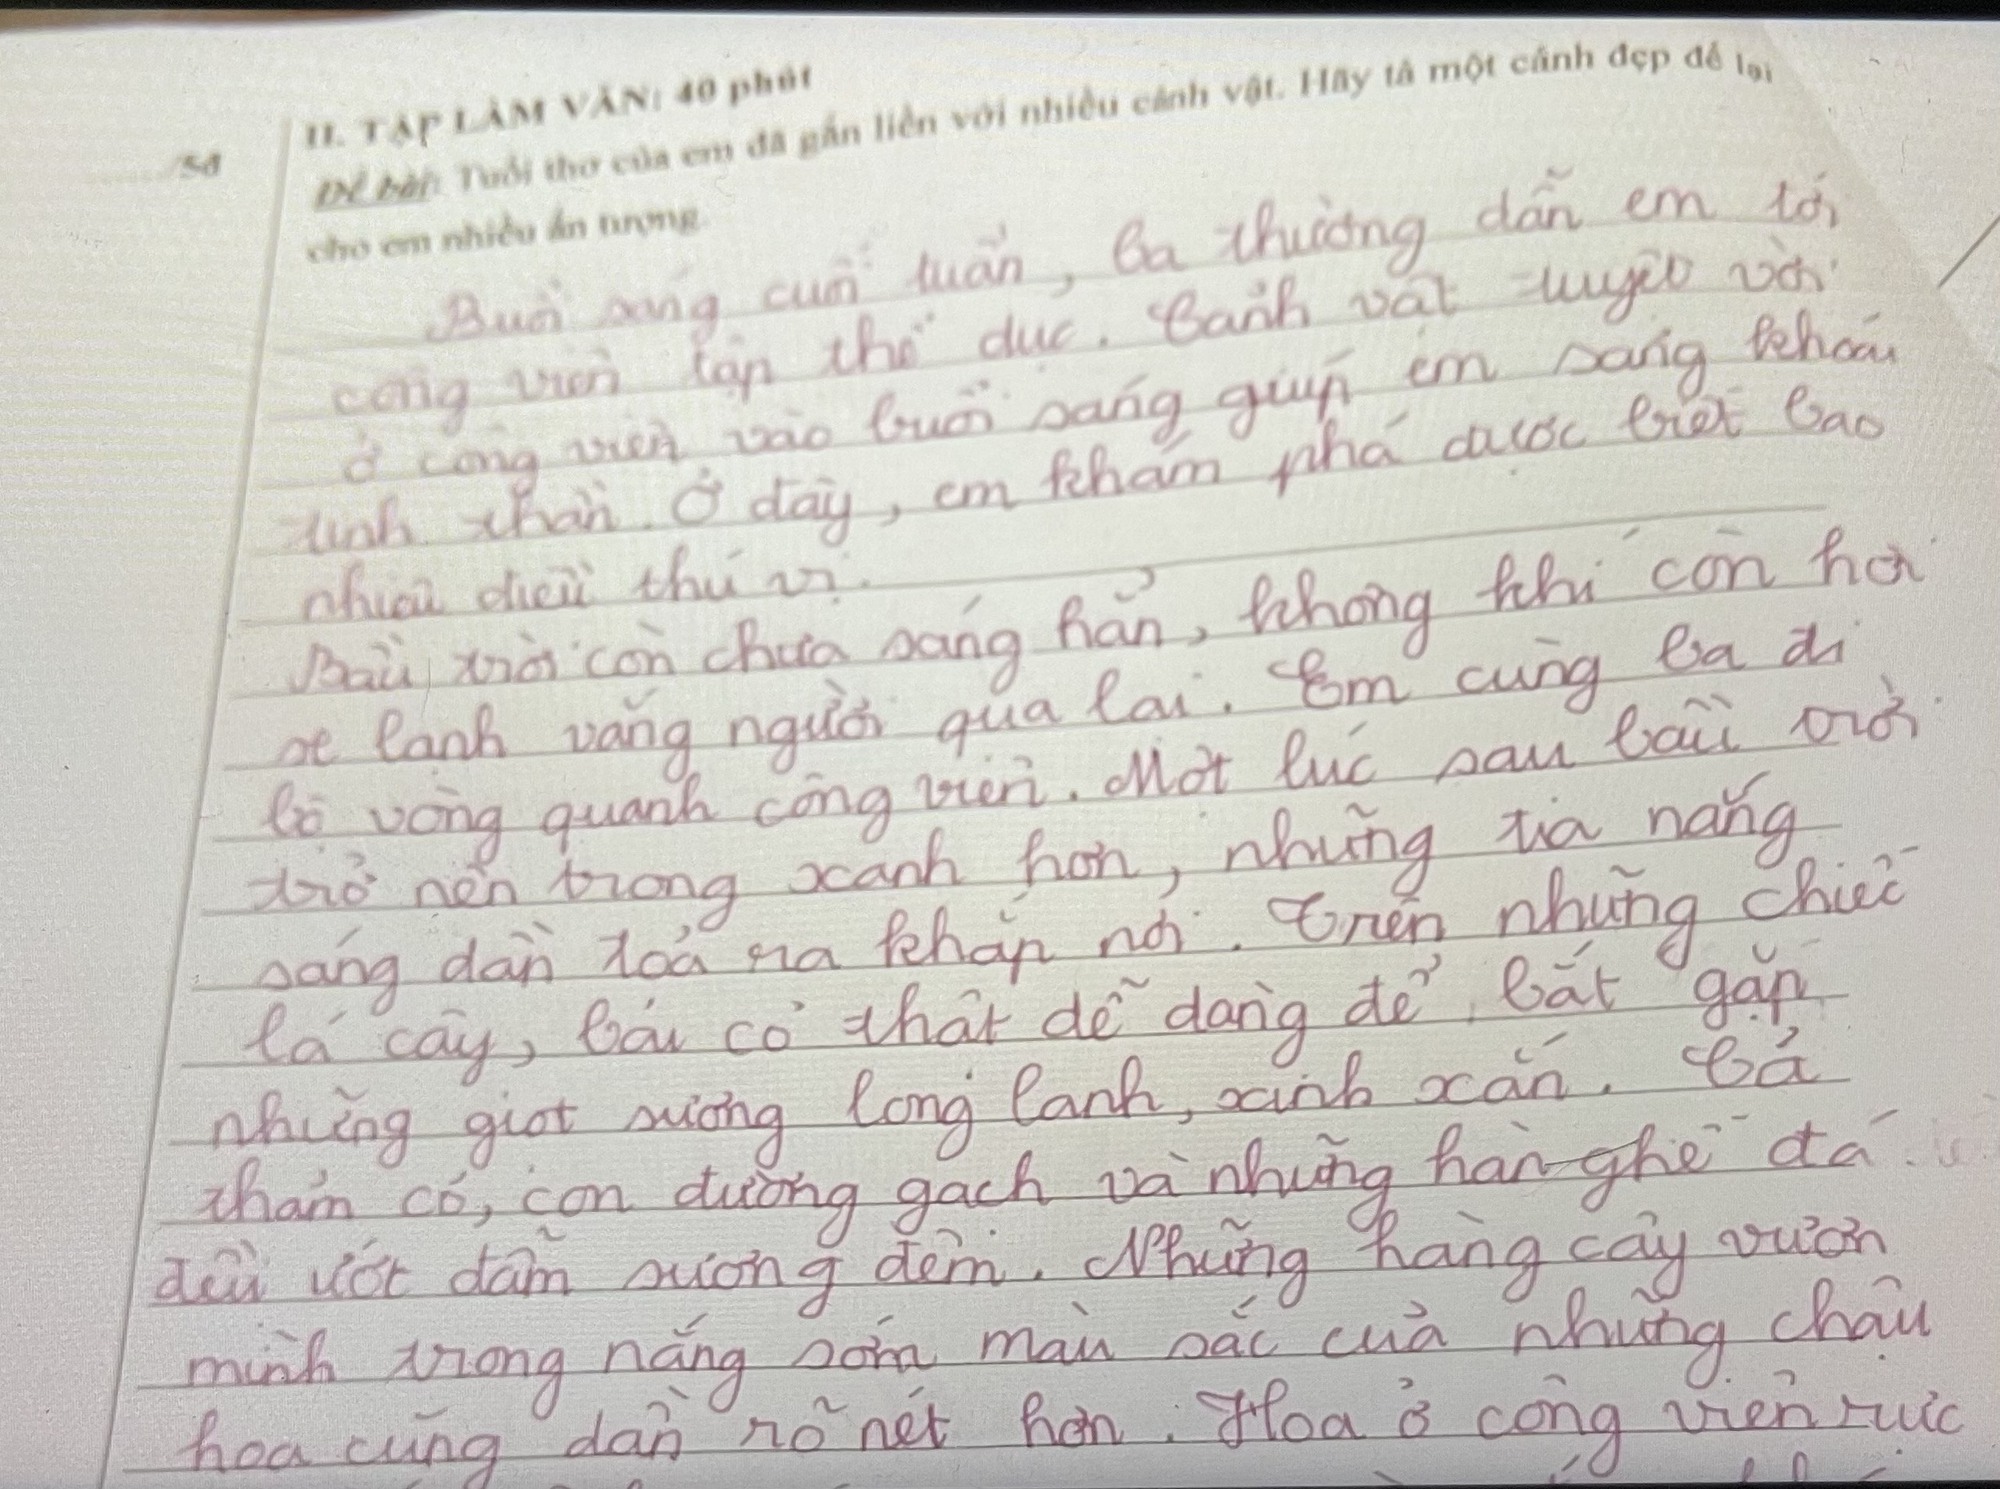 II. TẬP LÀM VĂN: 40 phút
...../5đ
Đề bài: Tuổi thơ của em đã gắn liền với nhiều cảnh vật. Hãy tả một cảnh đẹp để lại
cho em nhiều ấn tượng.
Buổi sáng cuối tuần, ba thường dẫn em tới
công viên tập thể dục. Cảnh vật tuyệt vời
ở công viên vào buổi sáng giúp em sảng khoái
tinh thần. Ở đây, em khám phá được biết bao
nhiêu điều thú vị.
Bầu trời còn chưa sáng hẳn, không khí còn hơi
se lạnh vắng người qua lại. Em cùng ba đi
bộ vòng quanh công viên. Một lúc sau bầu trời
trở nên trong xanh hơn, những tia nắng
sáng dần toả ra khắp nơi. Trên những chiếc
lá cây, ta có thật dễ dàng để bắt gặp
những giọt sương long lanh, xinh xắn. Cả
thảm cỏ, con đường gạch và những hàn ghế đá
đều ướt đẫm sương đêm. Những hàng cây vươn
mình trong nắng sớm màu sắc của những chậu
hoa cũng dần rõ nét hơn. Hoa ở công viên rực